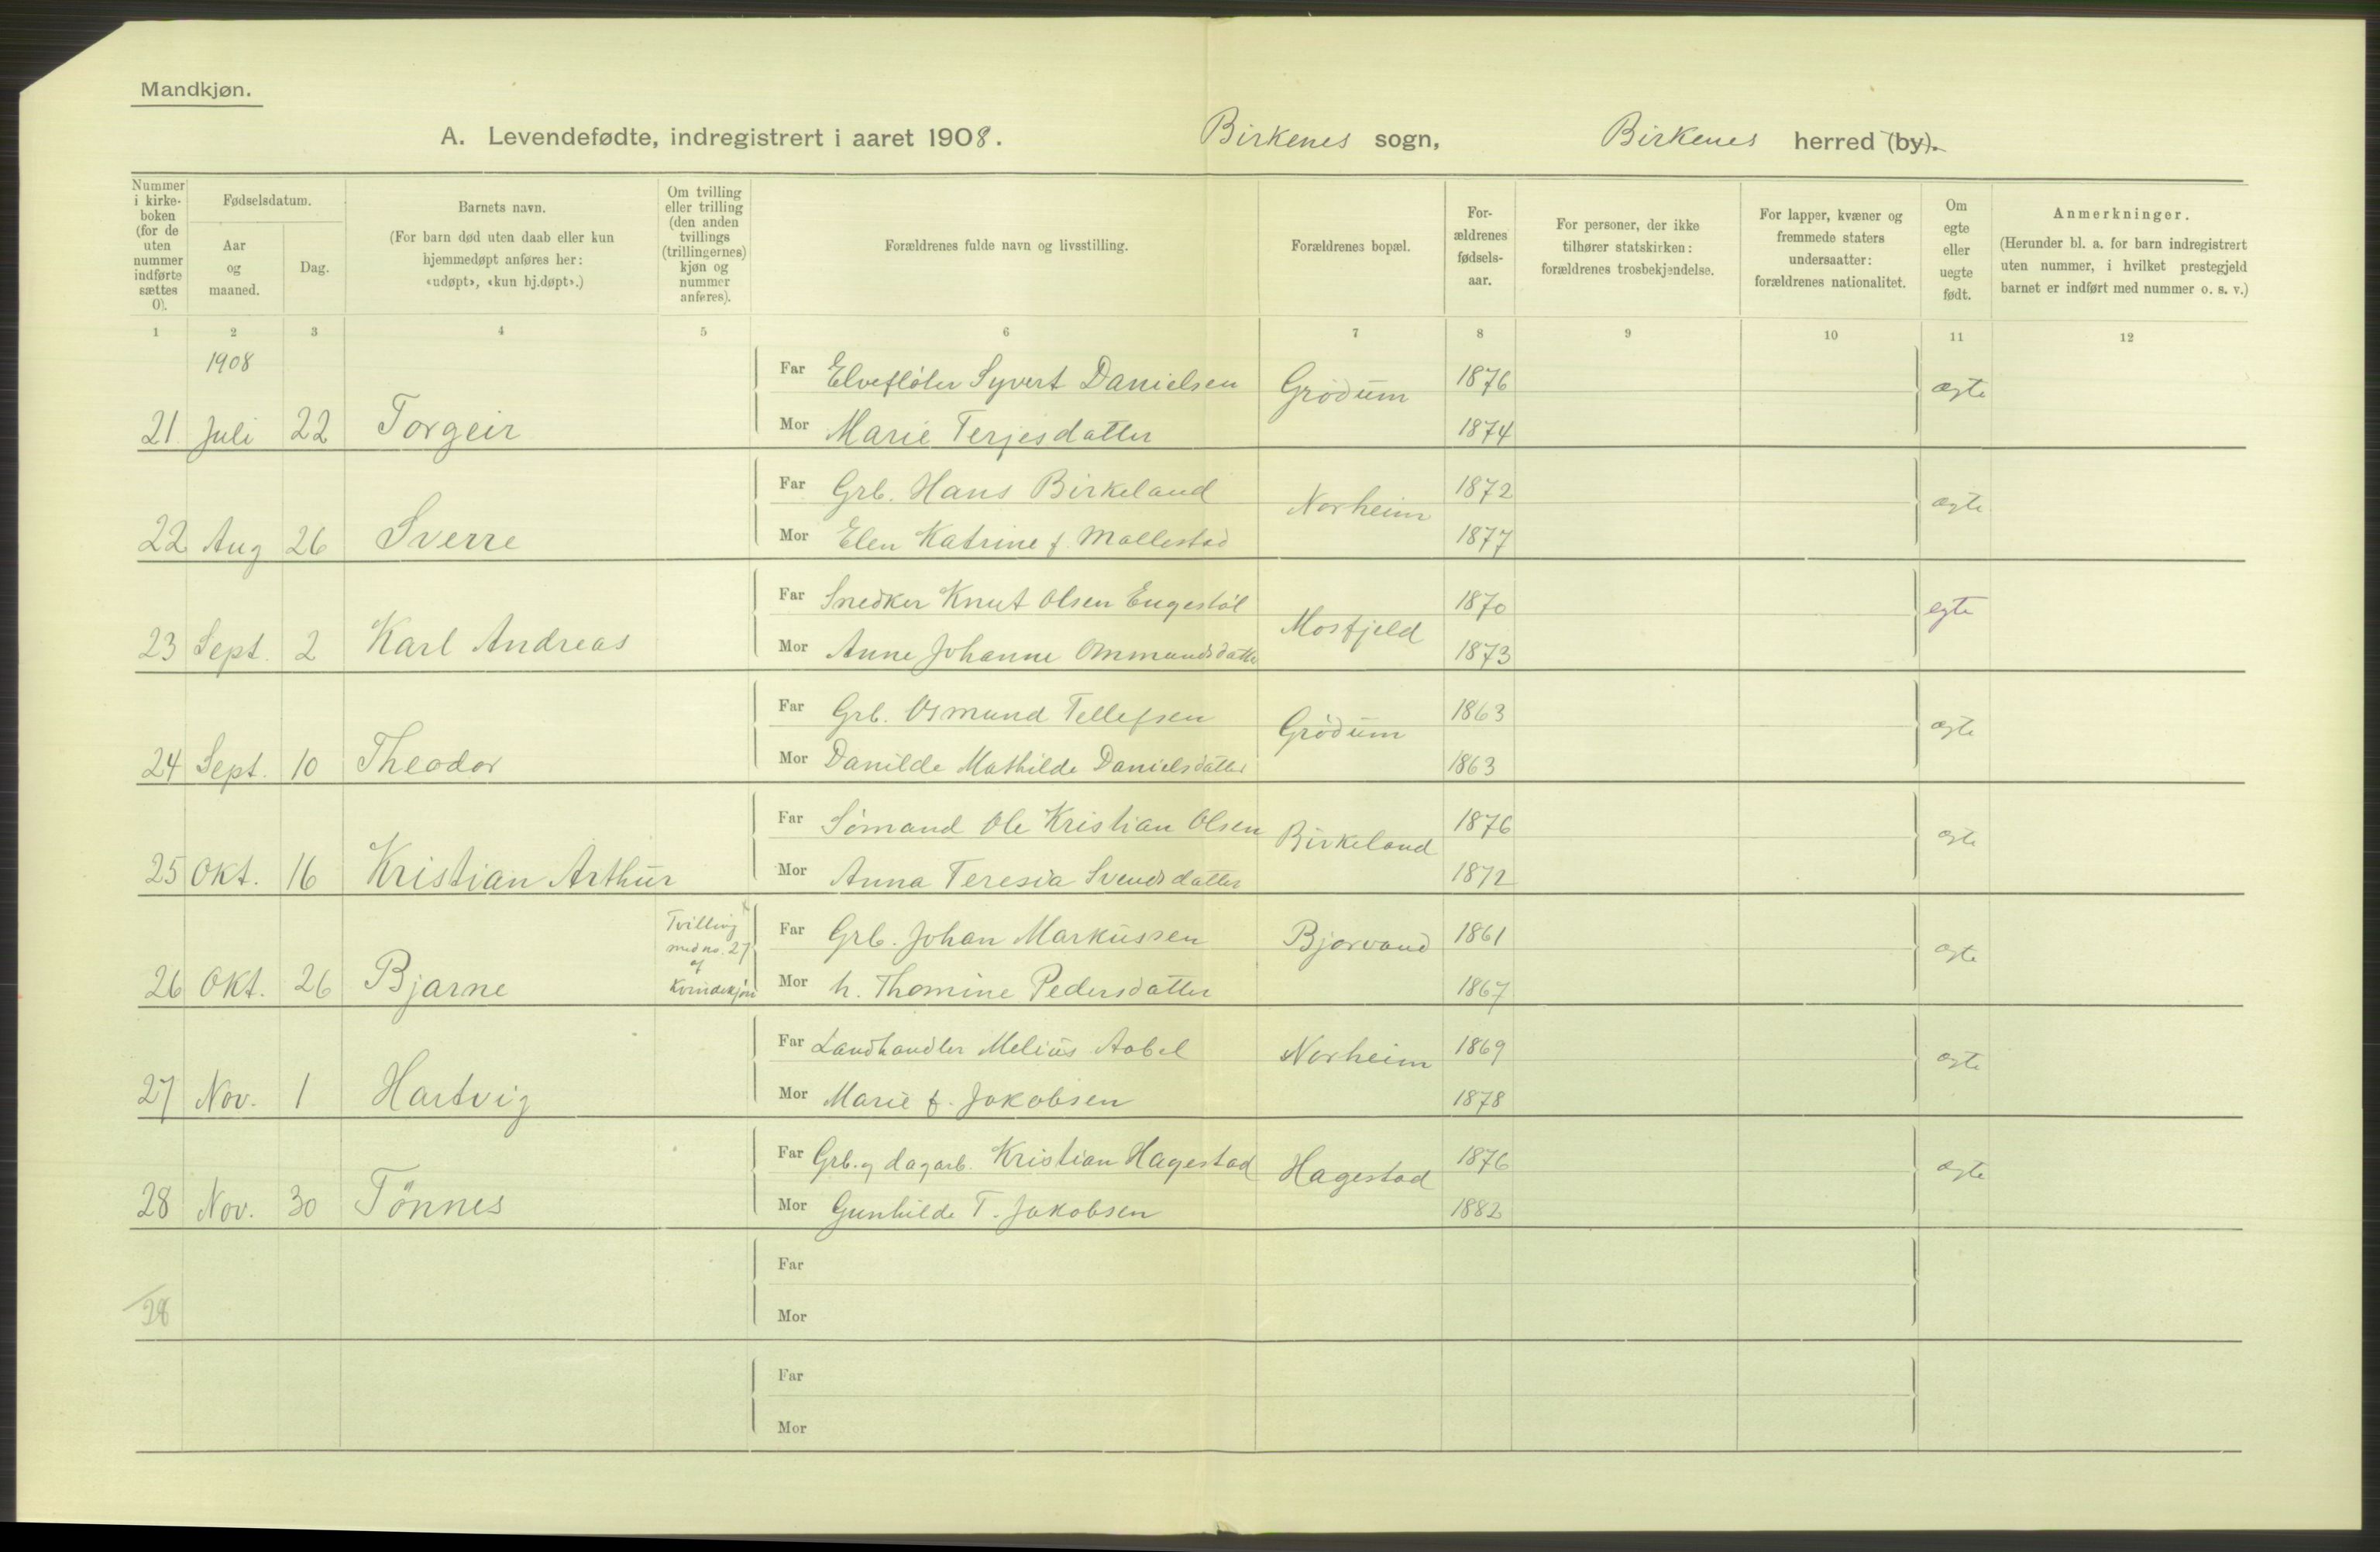 Mandkjøn.
A. Levendefødte, indregistrert i aaret 1908. Birkenes sogn, Birkenes herred (by).
Nummer i kirke-boken (for de uten nummer indførte sættes 0).
Fødselsdatum.
Aar og maaned.
Dag.
Barnets navn.
(For barn død uten daab eller kun hjemmedøpt anføres her: «udøpt», «kun hj.døpt».)
Om tvilling eller trilling (den anden tvillings (trillingernes) kjøn og nummer anføres).
Forældrenes fulde navn og livsstilling.
Forældrenes bopæl.
For-ældrenes fødsels-aar.
For personer, der ikke tilhører statskirken: forældrenes trosbekjendelse.
For lapper, kvæner og fremmede staters undersaatter: forældrenes nationalitet.
Om egte eller uegte født.
Anmerkninger.
(Herunder bl. a. for barn indregistrert uten nummer, i hvilket prestegjeld barnet er indført med nummer o. s. v.)
1 2 3 4 5 6 7 8 9 10 11 12
1908
Far Elvefløter Syvert Danielsen Grødum 1876 ægte
21 Juli 22 Torgeir
Mor Marie Terjesdatter 1874
Far Grb. Hans Birkeland Norheim 1872 ægte
22 Aug 26 Sverre
Mor Elen Katrine f. Mollestad 1877
Far Snedker Knut Olsen Engestøl Mosfjeld 1870 egte
23 Sept. 2 Karl Andreas
Mor Anne Johanne Ommundsdatter 1873
Far Grb. Osmund Tellefsen Grødum 1863 ægte
24 Sept. 10 Theodor
Mor Danilde Mathilde Danielsdatter 1863
Far Sømand Ole Kristian Olsen Birkeland 1876 ægte
25 Okt. 16 Kristian Arthur
Mor Anna Teresia Svendsdatter 1872
Tvilling med no. 27 af Kvindekjøn
Far Grb. Johan Markussen Bjorvand 1861 ægte
26 Okt. 26 Bjarne
Mor h. Thomine Pedersdatter 1867
Far Landhandler Melius Aabel Norheim 1869 ægte
27 Nov. 1 Hartvig
Mor Marie f. Jakobsen 1878
Far Grb. og dagarb. Kristian Hagestad Hagestad 1876 ægte
28 Nov. 30 Tönnes
Mor Gunhilde T. Jakobsen 1882
Far
28
Mor
Far
Mor